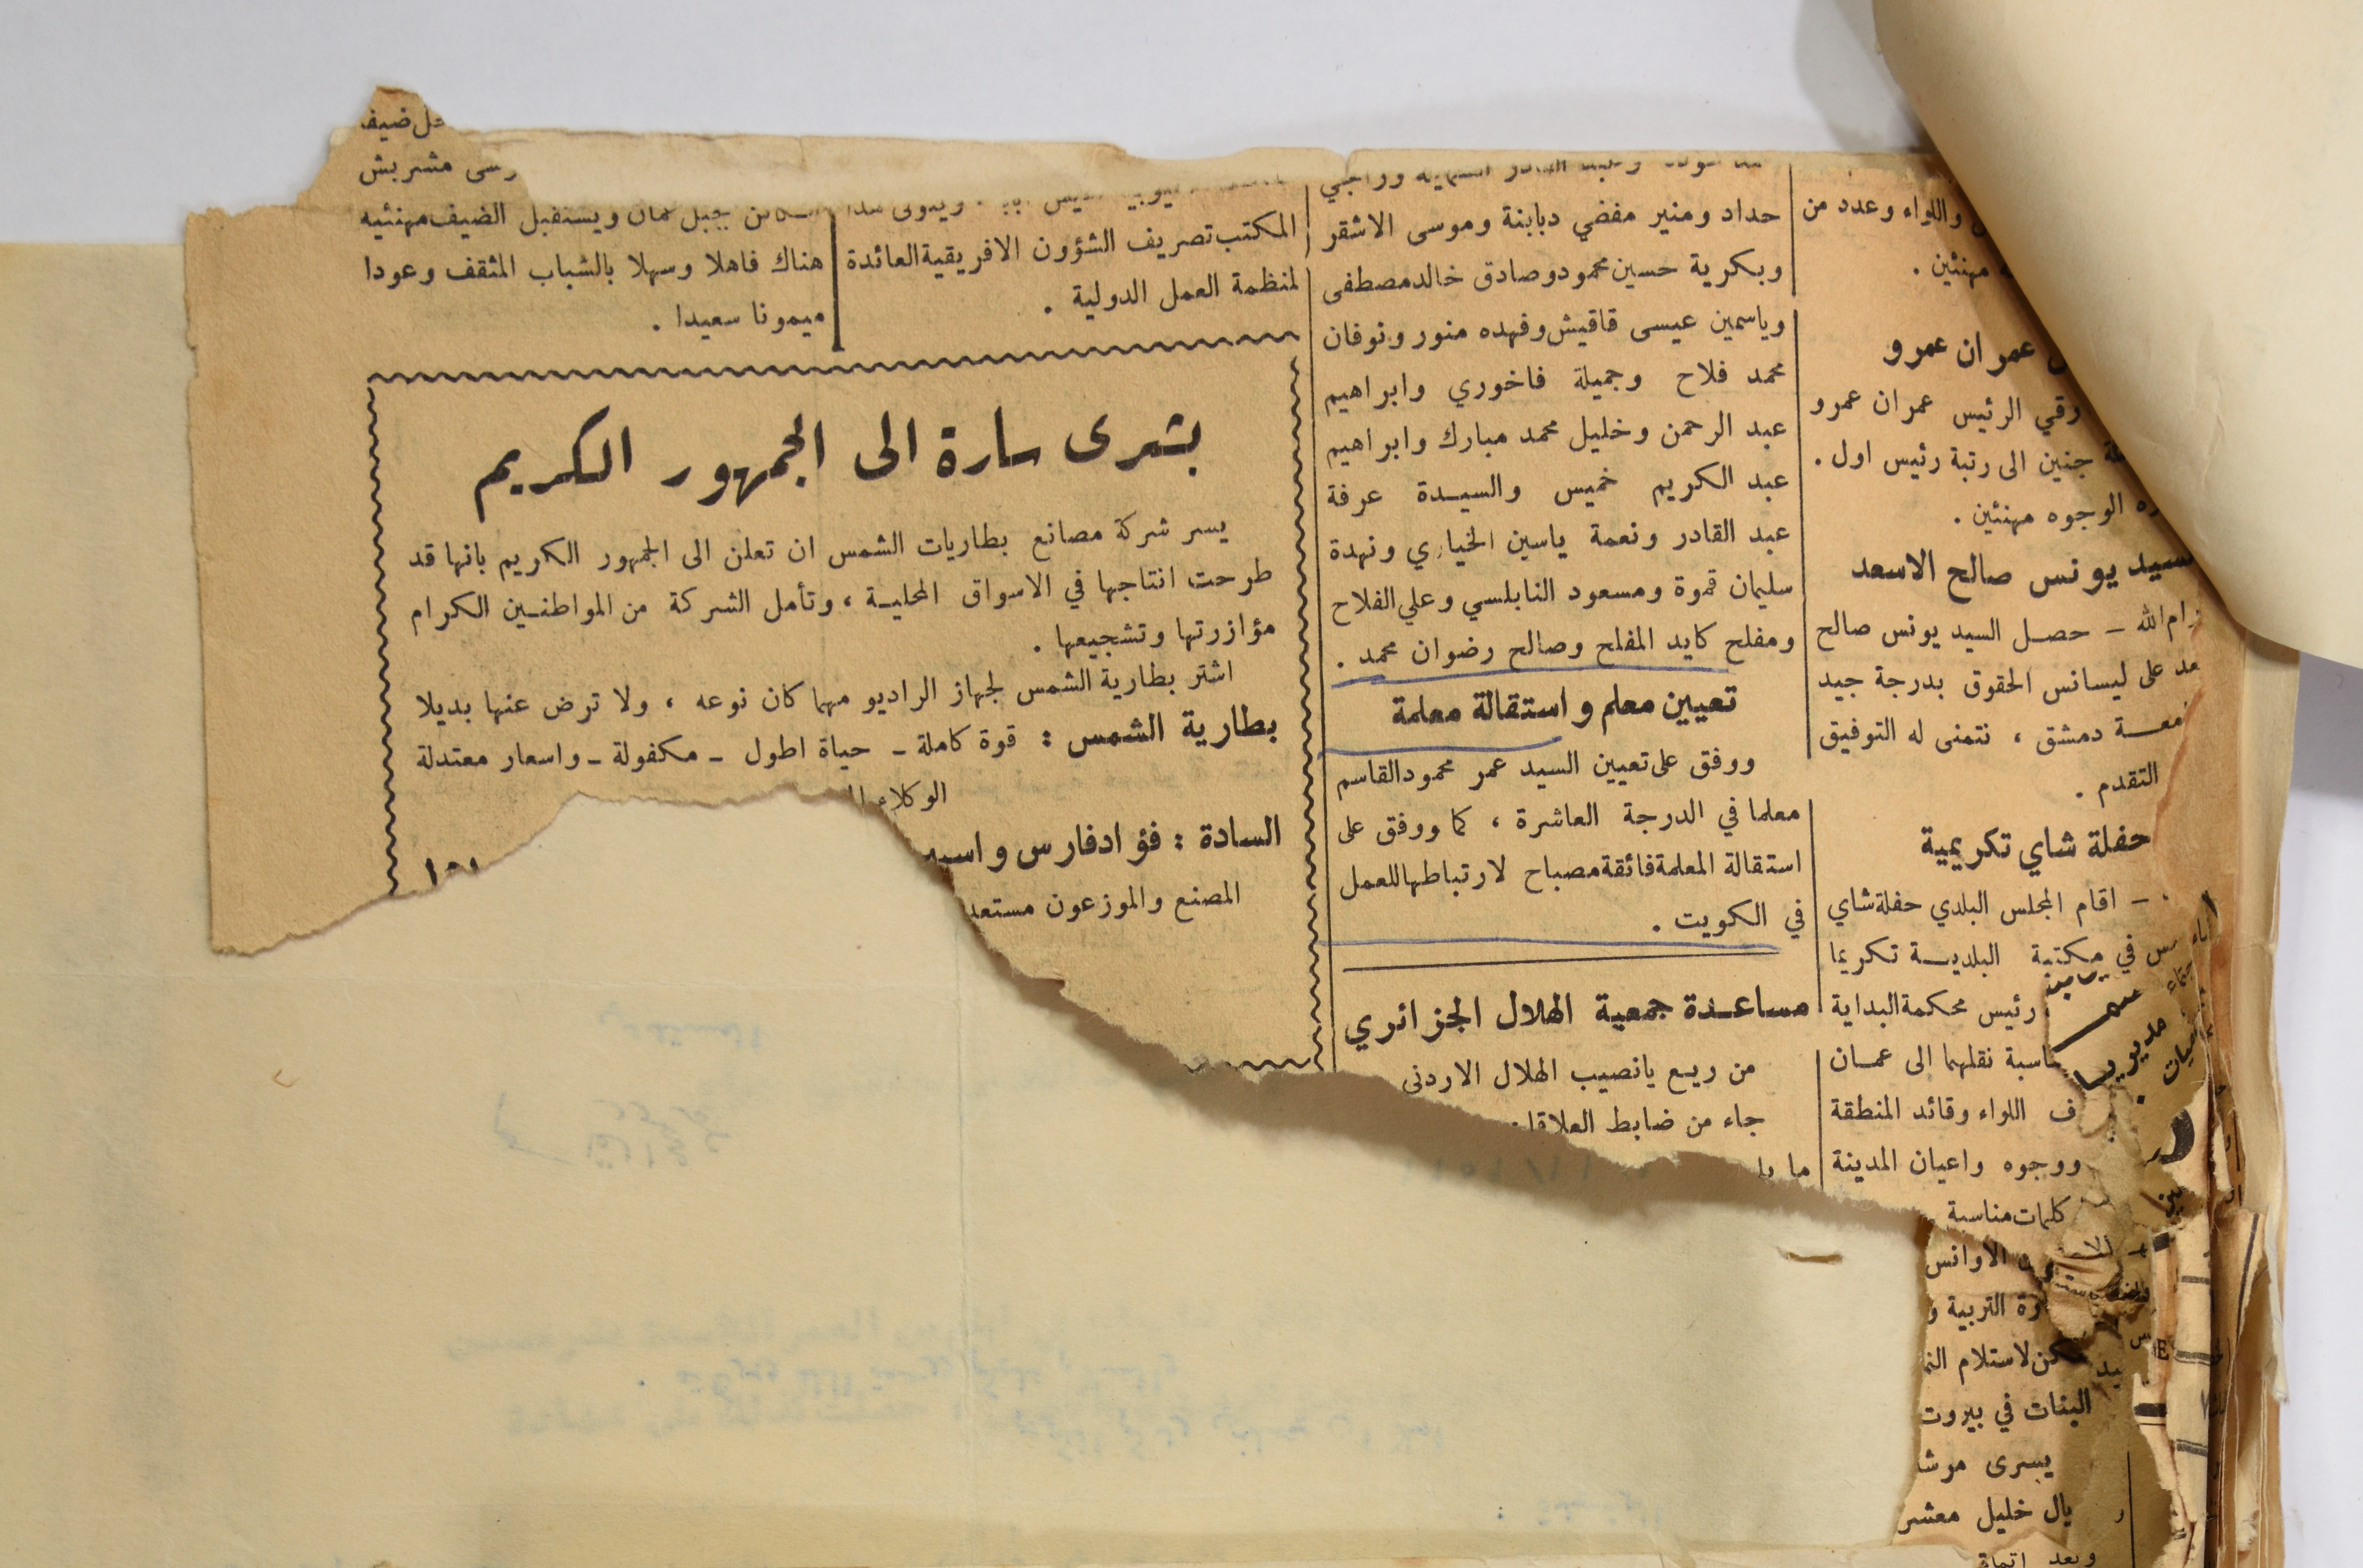 واللواء وعدد من
مهنئين .
عمران عمرو
رقي الرئيس عمران عمرو
جنين الى رتبة رئيس اول .
الوجوه مهنئين .
السيد يونس صالح الاسعد
رام الله – حصل السيد يونس صالح
على ليسانس الحقوق بدرجة جيد
دمشق ، نتمنى له التوفيق
التقدم .
حفلة شاي تكريمية
– اقام المجلس البلدي حفلة شاي
في مكتبة البلدية تكريما
رئيس محكمة البداية
نقلهما الى عمان
اللواء وقائد المنطقة
ووجوه واعيان المدينة
كلمات مناسبة
الاوانس
التربية و
لاستلام
البنات في بيروت
يسرى
خليل
وبعد
حداد ومنير مفضي دبابنة وموسى الاشقر
وبكرية حسين محمود وصادق خالد مصطفى
وياسمين عيسى قاقيش وفهده منور ونوفان
محمد فلاح وجميلة فاخوري وابراهيم
عبد الرحمن وخليل محمد مبارك وابراهيم
عبد الكريم خميس والسيدة عرفة
عبد القادر ونعمة ياسين الخياري ونهدة
سليمان قموة ومسعود النابلسي وعلي الفلاح
ومفلح كايد المفلح وصالح رضوان محمد .
تعيين معلم واستقالة معلمة
ووفق على تعيين السيد عمر محمود القاسم
معلما في الدرجة العاشرة ، كما ووفق على
استقالة المعلمة فائقة مصباح لارتباطها للعمل
في الكويت .
مساعدة جمعية الهلال الجزائري
من ريع يانصيب الهلال الاردني
جاء من ضابط
المكتب تصريف الشؤون الافريقية العائدة
لمنظمة العمل الدولية .
ضيف
مشربش
بجبل عمان ويستقبل الضيف مهنئيه
هناك فاهلا وسهلا بالشباب المثقف وعودا
ميمونا سعيدا .
بشرى سارة الى الجمهور الكريم
يسر شركة مصانع بطاريات الشمس ان تعلن الى الجمهور الكريم بانها قد
طرحت انتاجها في الاسواق المحلية ، وتأمل الشركة من المواطنين الكرام
مؤازرتها وتشجيعها .
اشتر بطارية الشمس لجهاز الراديو مهما كان نوعه ، ولا ترض عنها بديلا
بطارية الشمس : قوة كاملة – حياة اطول – مكفولة – واسعار معتدلة
الوكلاء
السادة : فؤاد فارس
المصنع والموزعون